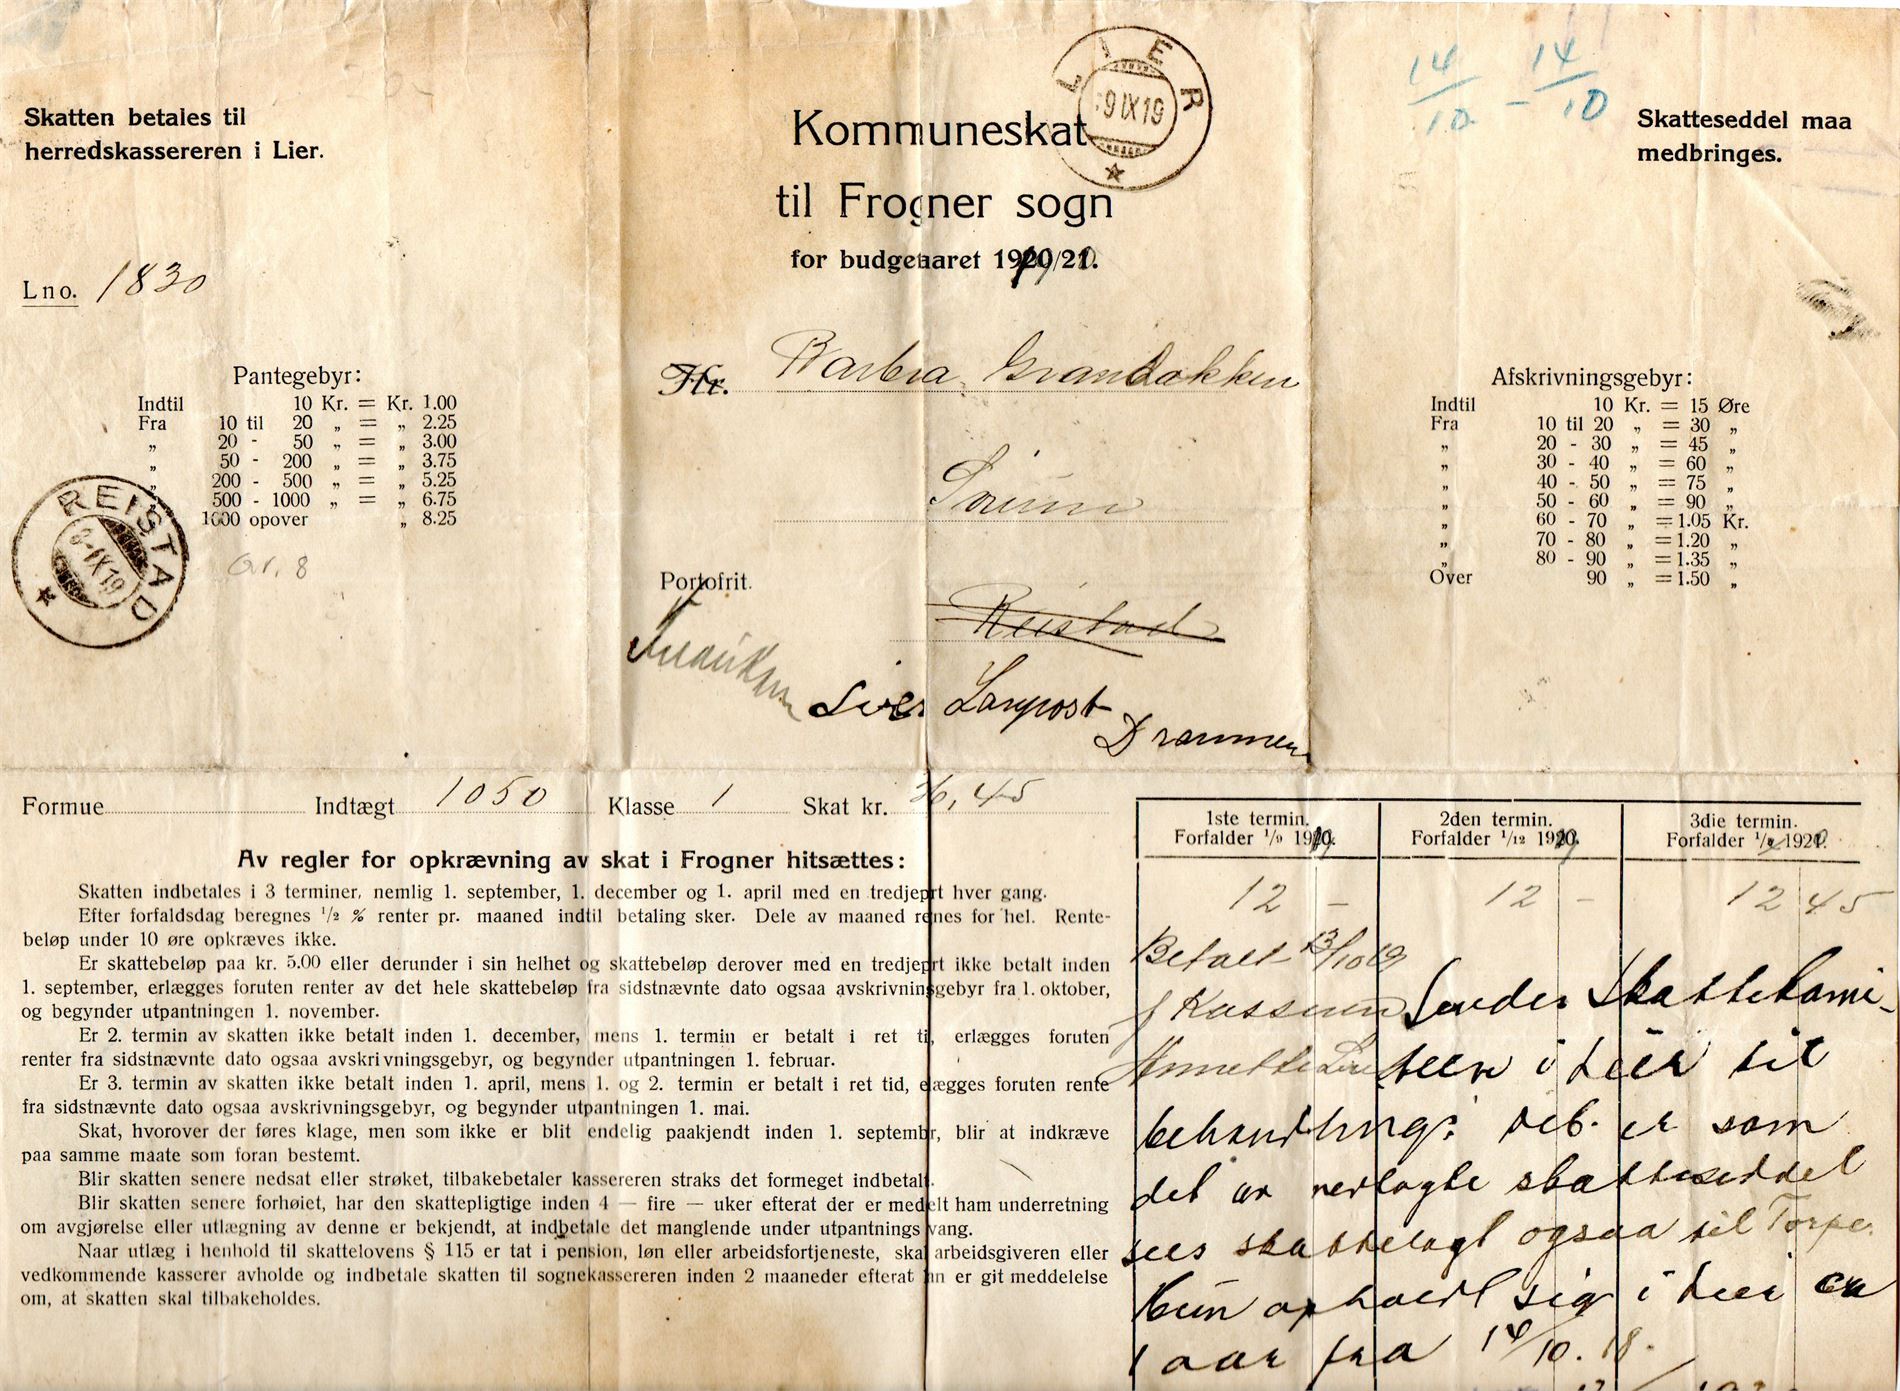 Skatten betales til
herredskassereren i Lier.
Lno. 1830
Pantegebyr:
Indtil 10 Kr. = Kr. 1.00
Fra 10 til 20 „ = „ 2.25
„ 20 - 50 „ = „ 3.00
„ 50 - 200 „ = „ 3.75
„ 200 - 500 „ = „ 5.25
500 - 1000 „ = „ 6.75
1000 opover „ 8.25
REISTAD
8-IX19
Gr. 8
Kommuneskat
til Frogner sogn
for budgetaaret 1920/21.
LIER
9IX19
Hr. Barbra Grandokken
Sørum
Portofrit.
Reistad
Lier Lanpost
Drammen
14/10 - 14/10
Skatteseddel maa
medbringes.
Afskrivningsgebyr:
Indtil 10 Kr. = 15 Øre
Fra 10 til 20 „ = 30 „
„ 20 - 30 „ = 45 „
„ 30 - 40 „ = 60 „
„ 40 - 50 „ = 75 „
„ 50 - 60 „ = 90 „
„ 60 - 70 „ = 1.05 Kr.
„ 70 - 80 „ = 1.20 „
„ 80 - 90 „ = 1.35 „
Over 90 „ = 1.50 „
Formue Indtægt 1050 Klasse 1 Skat kr. 36,45
Av regler for opkrævning av skat i Frogner hitsættes:
Skatten indbetales i 3 terminer, nemlig 1. september, 1. december og 1. april med en tredjepart hver gang.
Efter forfaldsdag beregnes 1/2 % renter pr. maaned indtil betaling sker. Dele av maaned regnes for hel. Rente-
beløp under 10 øre opkræves ikke.
Er skattebeløp paa kr. 5.00 eller derunder i sin helhet og skattebeløp derover med en tredjepart ikke betalt inden
1. september, erlægges foruten renter av det hele skattebeløp fra sidstnævnte dato ogsaa avskrivningsgebyr fra 1. oktober,
og begynder utpantningen 1. november.
Er 2. termin av skatten ikke betalt inden 1. december, mens 1. termin er betalt i ret tid, erlægges foruten
renter fra sidstnævnte dato ogsaa avskrivningsgebyr, og begynder utpantningen 1. februar.
Er 3. termin av skatten ikke betalt inden 1. april, mens 1. og 2. termin er betalt i ret tid, erlægges foruten rente
fra sidstnævnte dato ogsaa avskrivningsgebyr, og begynder utpantningen 1. mai.
Skat, hvorover der føres klage, men som ikke er blit endelig paakjendt inden 1. september, blir at indkræve
paa samme maate som foran bestemt.
Blir skatten senere nedsat eller strøket, tilbakebetaler kassereren straks det formeget indbetalt.
Blir skatten senere forhøiet, har den skattepligtige inden 4 — fire — uker efterat der er meddelt ham underretning
om avgjørelse eller utlægning av denne er bekjendt, at indbetale det manglende under utpantningstvang.
Naar utlæg i henhold til skattelovens § 115 er tat i pension, løn eller arbeidsfortjeneste, skal arbeidsgiveren eller
vedkommende kasserer avholde og indbetale skatten til sognekassereren inden 2 maaneder efterat han er git meddelelse
om, at skatten skal tilbakeholdes.
1ste termin. 2den termin. 3die termin.
Forfalder 1/9 1919. Forfalder 1/12 1919. Forfalder 1/4 1920.
12 - 12 - 12 45
Betalt 13/10 19
f Kasseren
Sendes Skattekomi-
teen i Lier til
behandling. Ved. er som
det av vedlagte skatteseddel
sees skattelagt ogsaa til Torpe.
Hun opholdt sig i Lier ca
1 aar fra 14/10. 18.